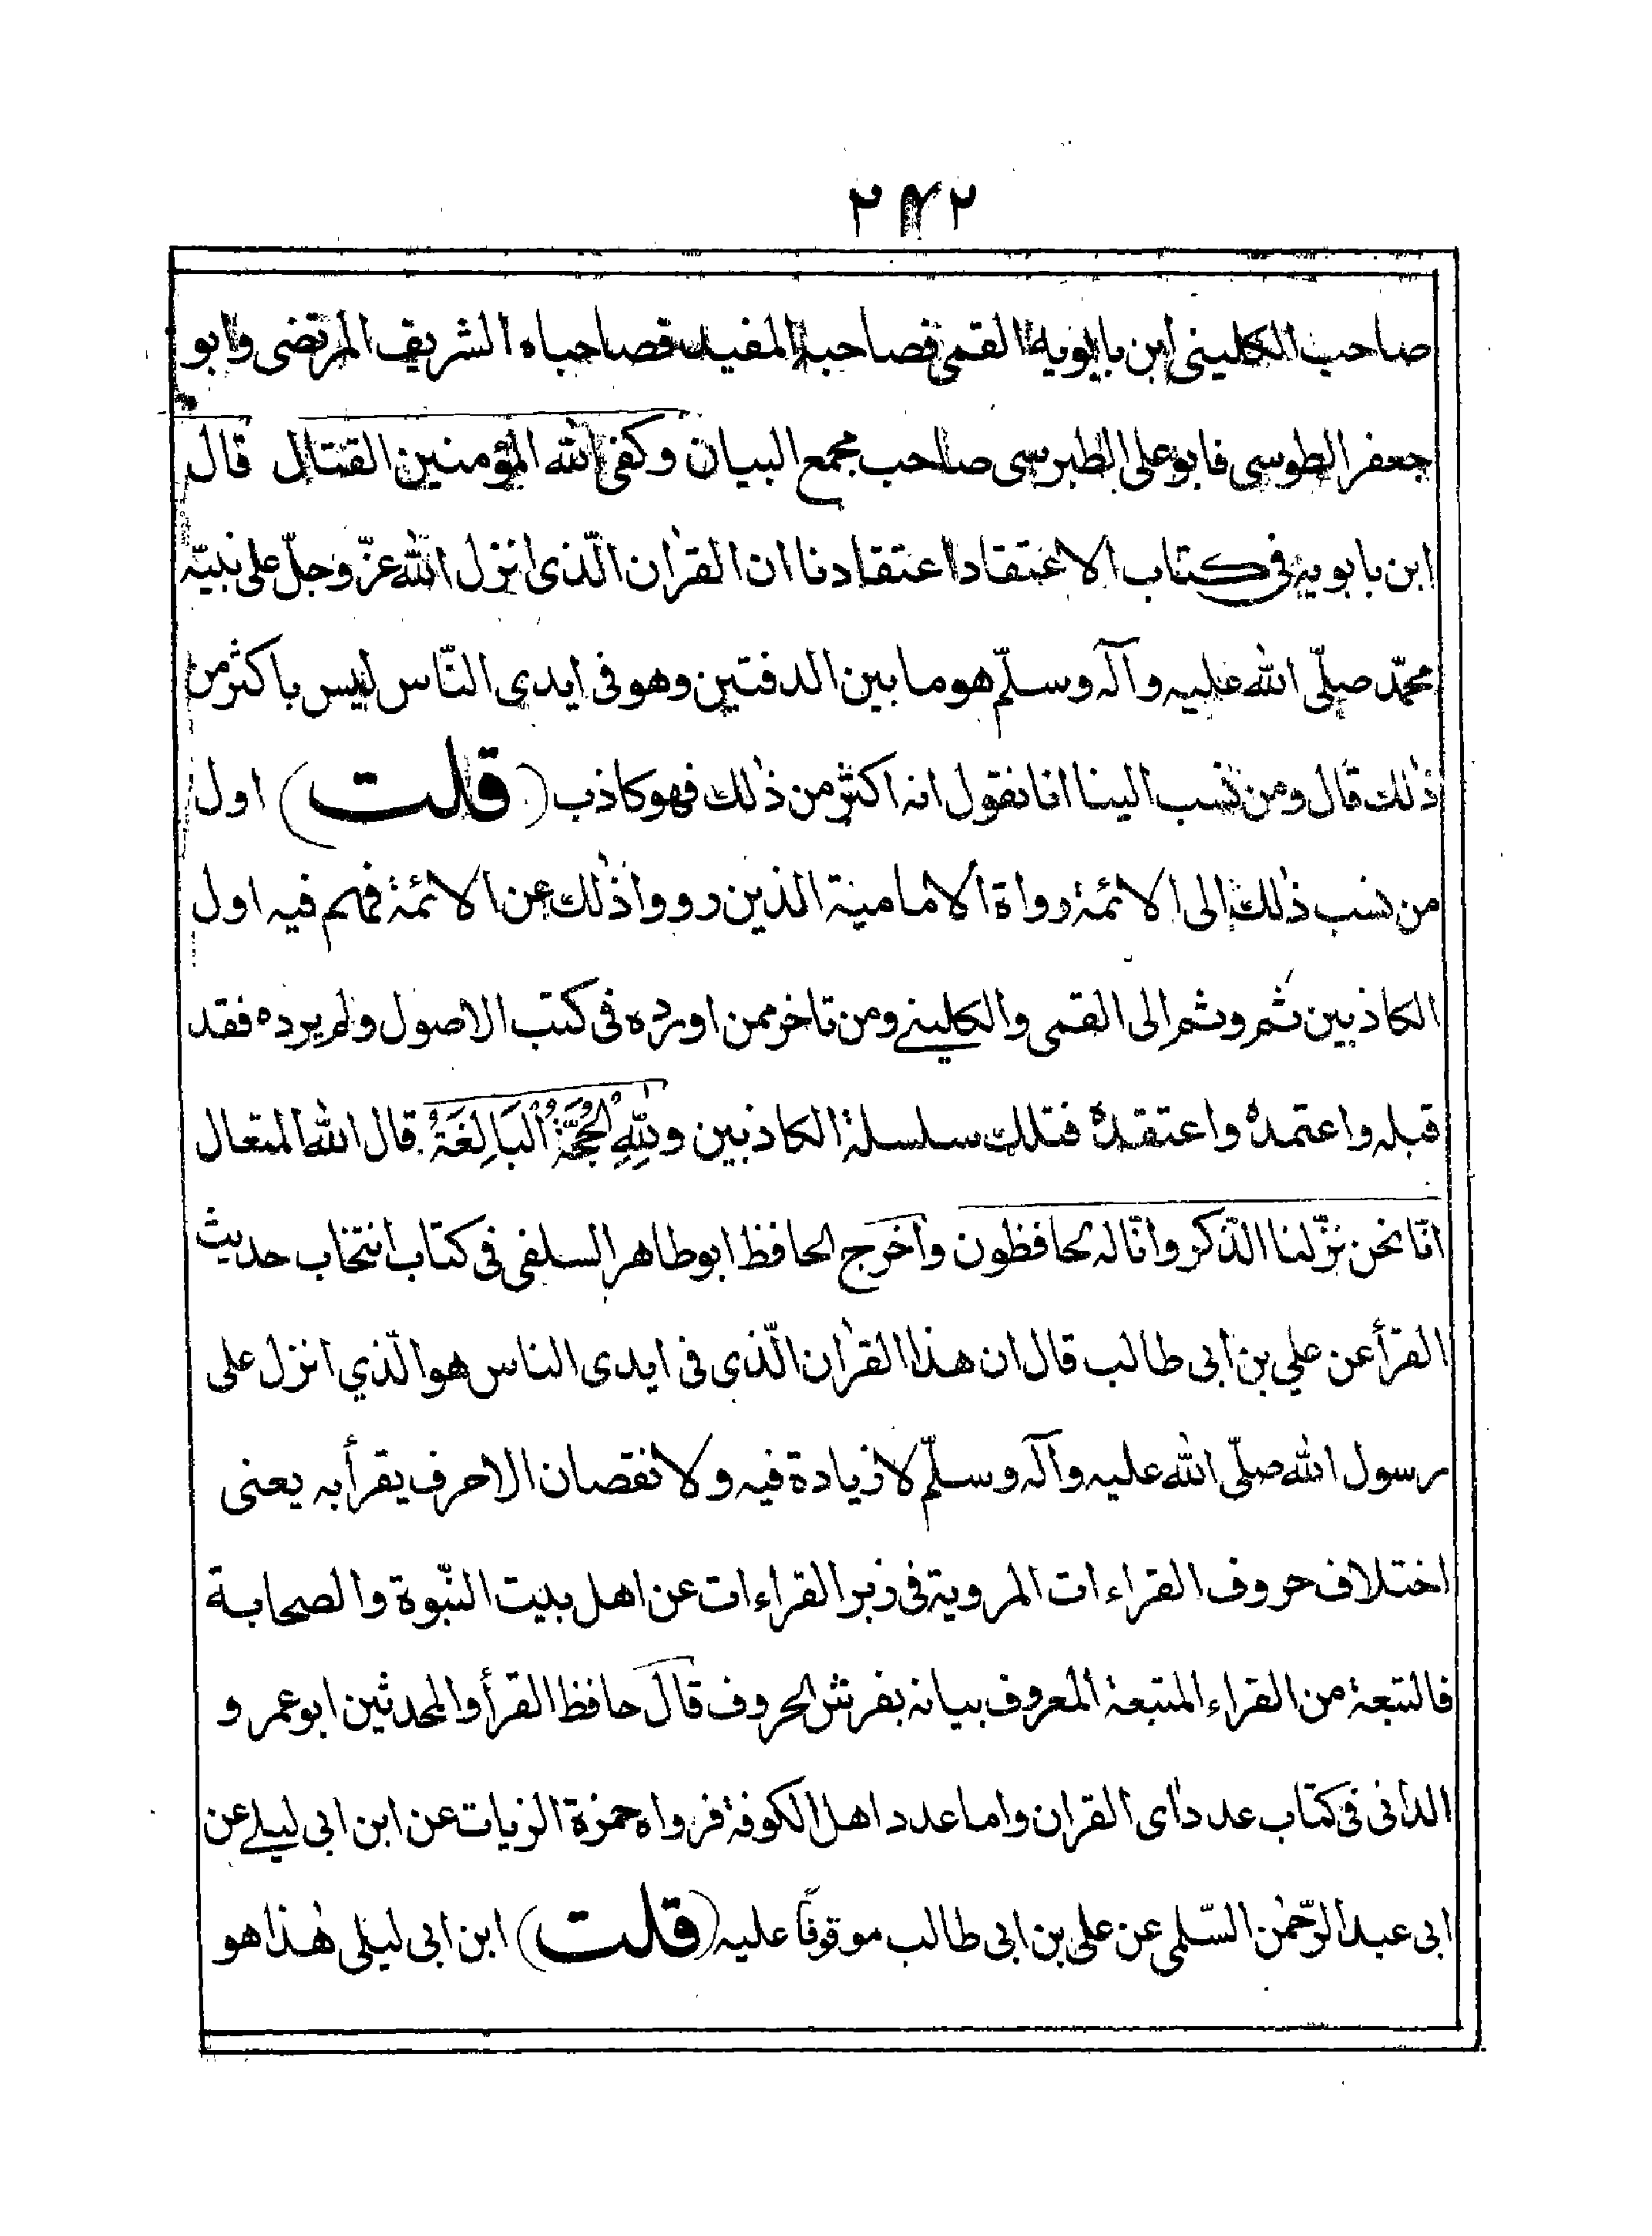 ٢٤٢
صاحب الكلينى ابن بابويه القمى فصاحبه المفيد فصاحباه الشريف المرتضى وابو
جعفر الطوسى فابو على الطبرسى صاحب مجمع البيان وكفى الله المؤمنين القتال قال
ابن بابويه فى كتاب الاعتقاد اعتقادنا ان القرٰان الّذى انزل الله عزّ وجلّ على نبيّه
محمّد صلّى الله عليه وآله وسلّم هو ما بين الدفتين وهو فى ايدى النّاس ليس باكثر من
ذٰلك قال ومن نسب الينا انا نقول انه اكثر من ذٰلك فهو كاذب (قلت) اول
من نسب ذٰلك الى الائمة رواة الامامية الذين رووا ذٰلك عن الائمة فهم فيه اول
الكاذبين ثم وثم الى القمى والكلينے ومن تاخر ممن اورده فى كتب الاصول ولم يرده فقد
قبله واعتمده واعتقده فتلك سلسلة الكاذبين ولِلّٰهِ الْحُجَّةُ الْبَالِغَةُ قال الله المتعال
انّا نحن نزّلنا الذّكر وانّا له لحافظون واخرج الحافظ ابو طاهر السلفى فى كتاب انتخاب حديث
القرأ عن علي بن ابى طالب قال ان هذا القرٰان الّذى فى ايدى الناس هو الّذي انزل على
رسول الله صلّى الله عليه وآله وسلّم لا زيادة فيه ولا نقصان الا حرف يقرأ به يعنى
اختلاف حروف القراءات المروية فى زبر القراءات عن اهل بيت النّبوة والصحابة
فالتبعة من القراء المتبعة المعروف بيانه بفرش الحروف قال حافظ القرأ والمحدثين ابو عمر و
الدانى فى كتاب عدد اى القران واما عدد اهل الكوفة فرواه حمزة الزيات عن ابن ابى ليلے عن
ابى عبد الرّحمٰن السّلمى عن على بن ابى طالب موقوفًا عليه (قلت) ابن ابى ليلى هٰذا هو